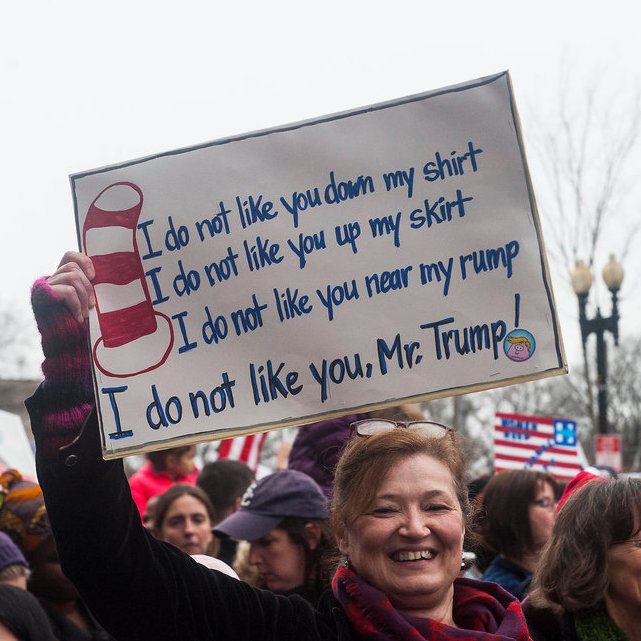 I do not like you down my shirt
I do not like you up my skirt
I do not like you near my rump
I do not like you, Mr. Trump!
WOMEN